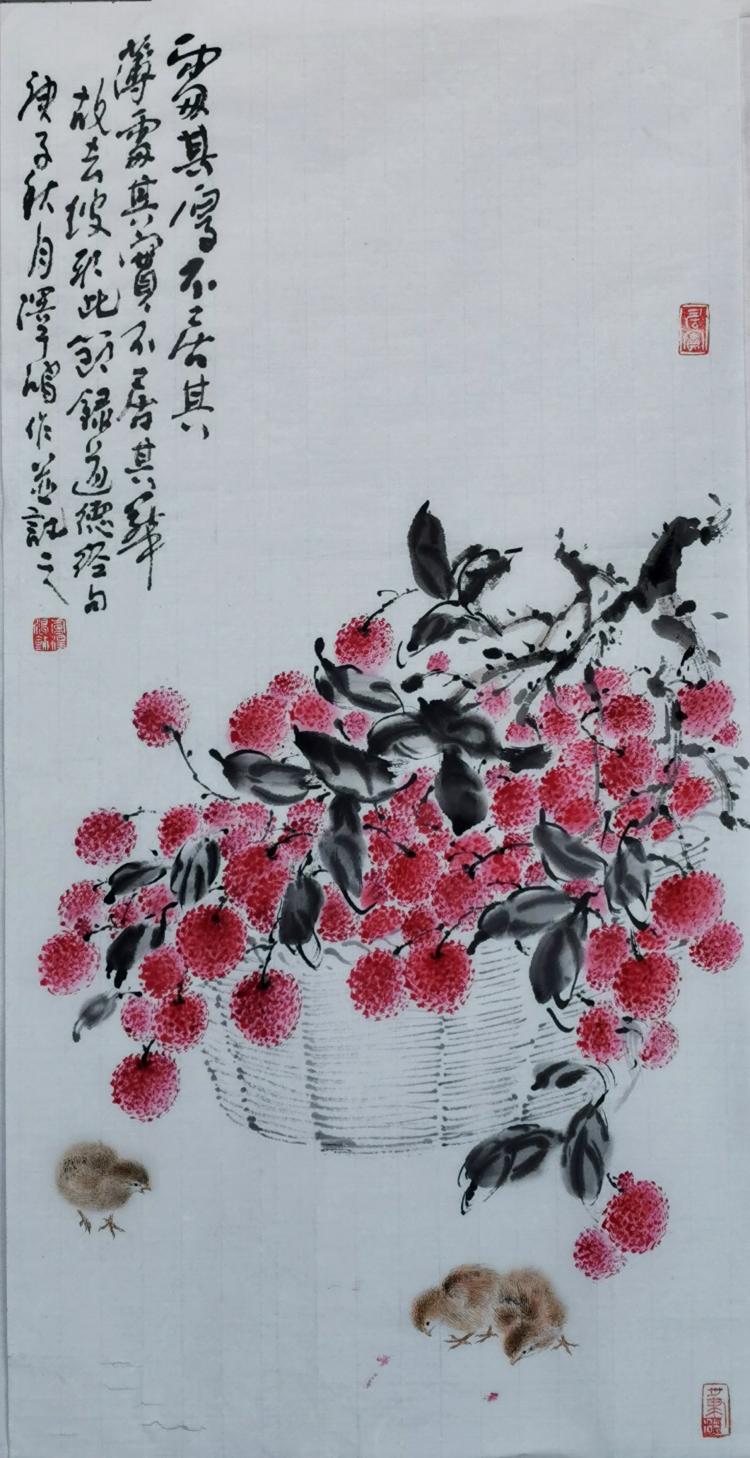 處其厚不居其
薄處其實不居其華
故去彼取此節録道德經句
庚子秋月澤鴻作並記之